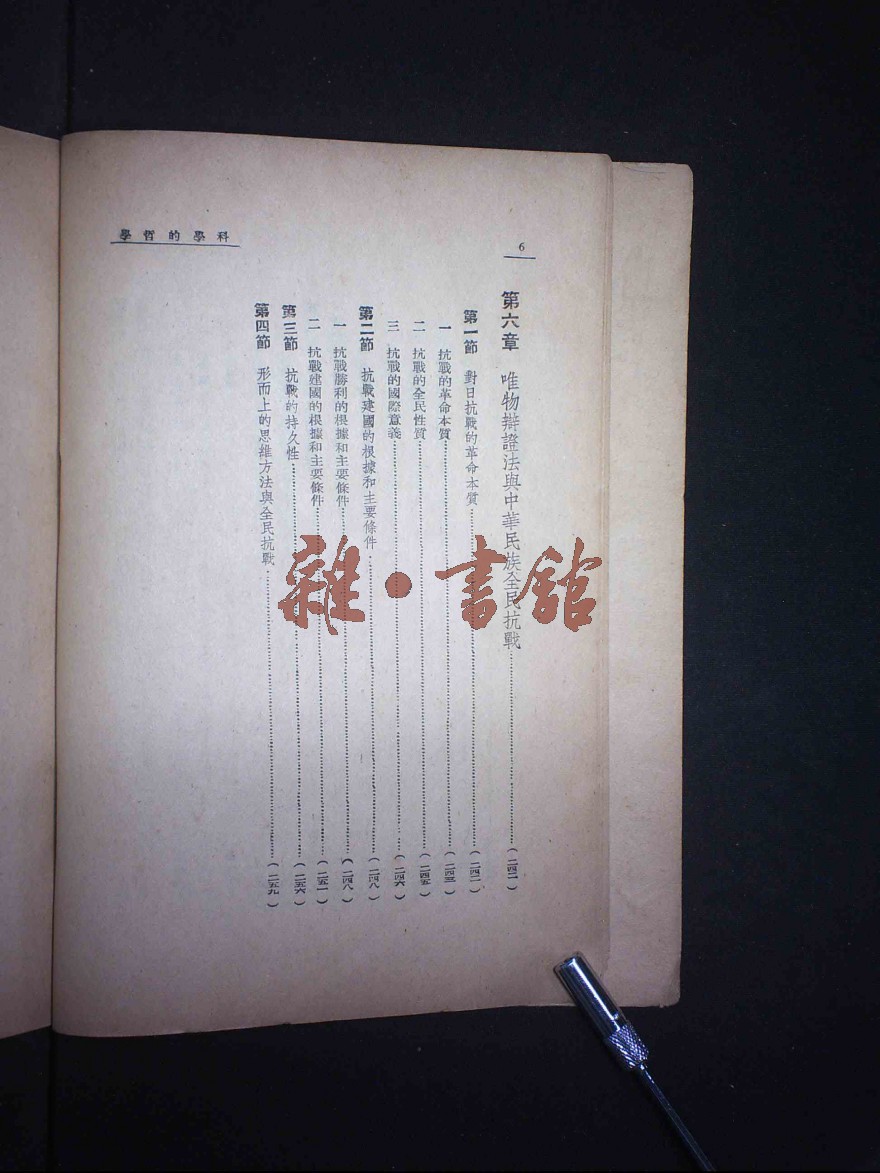 科學的哲學
6
第六章 唯物辯證法與中華民族全民抗戰……(二四二)
第一節 對日抗戰的革命本質……(二四二)
一 抗戰的革命本質……(二四三)
二 抗戰的全民性質……(二四五)
三 抗戰的國際意義……(二四六)
第二節 抗戰建國的根據和主要條件……(二四八)
一 抗戰勝利的根據和主要條件……(二四八)
二 抗戰建國的根據和主要條件……(二五一)
第三節 抗戰的持久性……(二五六)
第四節 形而上的思維方法與全民抗戰……(二五九)
雜·書館